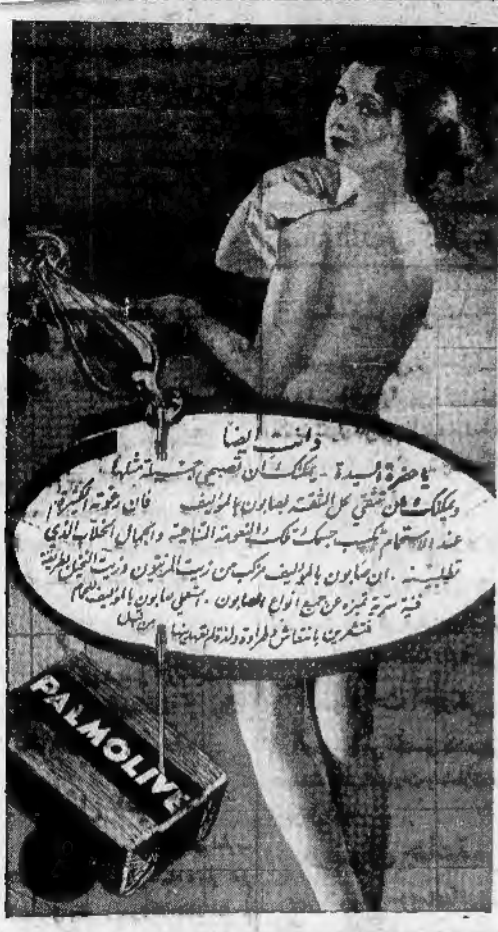 وانت ايضا
يا حضرة السيدة - يمكنك ان تصبحي جميلة مثلها.
ويمكنك ان تثقي كل الثقة لصابون بالموليف فان رغوته الكثيرة
عند الاستحمام تكسب جسمك تلك النعومة المتناهية والجمال الخلاب الذي
تطلبينه . ان صابون بالموليف مركب من زيت الزيتون وزيت النخيل بطريقة
فنية سرية تميزه عن جميع انواع الصابون . استعملي صابون بالموليف للحمام
فتشعرين بانتعاش وطراوة ولذة لم تعهديها من قبل
PALMOLIVE